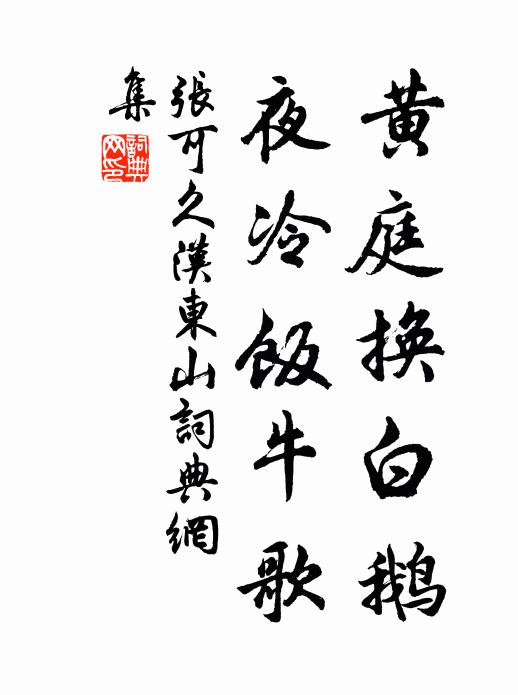 黃庭換白鵝
夜冷飯牛歌
張可久漢東山詞典網
集
詞典網印